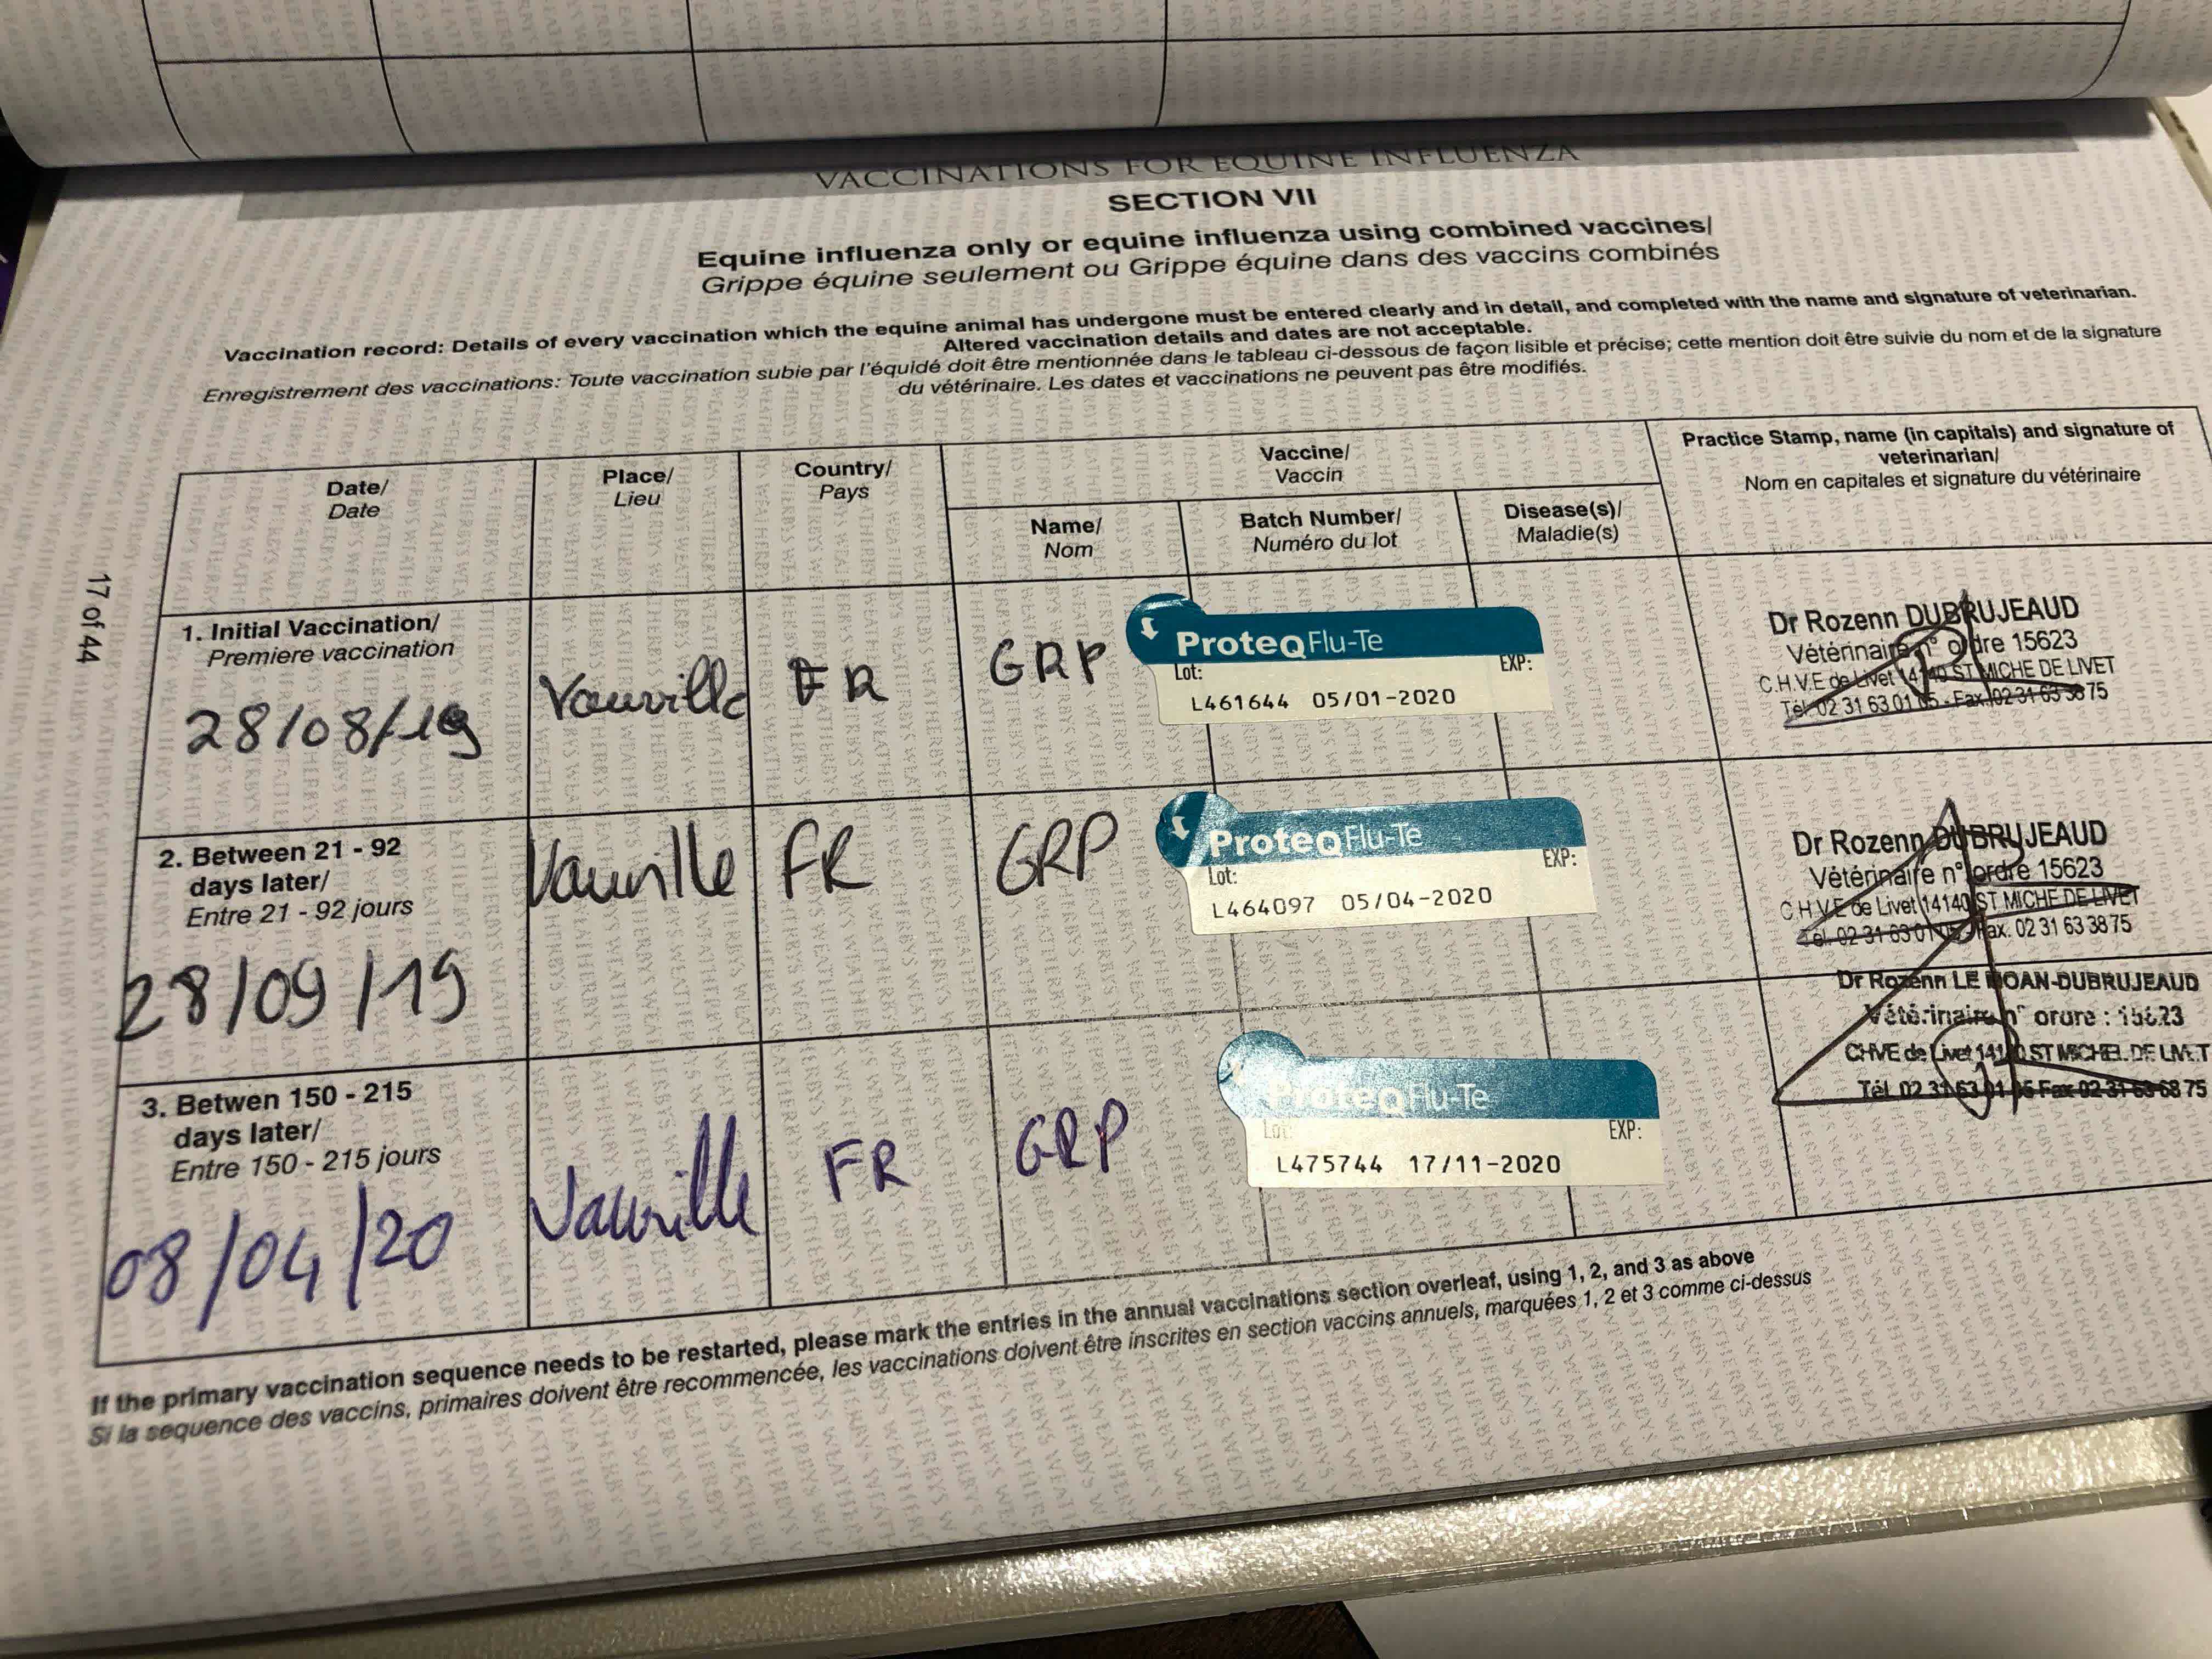 VACCINATIONS FOR EQUINE INFLUENZA
SECTION VII
Equine influenza only or equine influenza using combined vaccines/
Grippe équine seulement ou Grippe équine dans des vaccins combinés
Vaccination record: Details of every vaccination which the equine animal has undergone must be entered clearly and in detail, and completed with the name and signature of veterinarian.
Altered vaccination details and dates are not acceptable.
Enregistrement des vaccinations: Toute vaccination subie par l'équidé doit être mentionnée dans le tableau ci-dessous de façon lisible et précise; cette mention doit être suivie du nom et de la signature
du vétérinaire. Les dates et vaccinations ne peuvent pas être modifiés.
17 of 44
Date/
Date
Place/
Lieu
Country/
Pays
Vaccine/
Vaccin
Name/
Nom
Batch Number/
Numéro du lot
Disease(s)/
Maladie(s)
Practice Stamp, name (in capitals) and signature of
veterinarian/
Nom en capitales et signature du vétérinaire
1. Initial Vaccination/
Premiere vaccination
28/08/19
Vauville
FR
GRP
ProteqFlu-Te
Lot: EXP:
L461644 05/01-2020
Dr Rozenn DUBRUJEAUD
Vétérinaire n° ordre 15623
C.H.V.E de Livet 14140 ST MICHE DE LIVET
Tél. 02 31 63 01 05 - Fax. 02 31 63 38 75
2. Between 21 - 92
days later/
Entre 21 - 92 jours
28/09/19
Vauville
FR
GRP
ProteqFlu-Te
Lot: EXP:
L464097 05/04-2020
Dr Rozenn DUBRUJEAUD
Vétérinaire n° ordre 15623
C.H.V.E de Livet 14140 ST MICHE DE LIVET
Tél. 02 31 63 01 05 - Fax. 02 31 63 38 75
3. Betwen 150 - 215
days later/
Entre 150 - 215 jours
08/04/20
Vauville
FR
GRP
ProteqFlu-Te
Lot: EXP:
L475744 17/11-2020
Dr Rozenn LE MOAN-DUBRUJEAUD
Vétérinaire n° ordre : 15623
CHVE de Livet 14140 ST MICHEL DE LIVET
Tél. 02 31 63 01 05 Fax 02 31 63 68 75
If the primary vaccination sequence needs to be restarted, please mark the entries in the annual vaccinations section overleaf, using 1, 2, and 3 as above
Si la sequence des vaccins, primaires doivent être recommencée, les vaccinations doivent être inscrites en section vaccins annuels, marquées 1, 2 et 3 comme ci-dessus